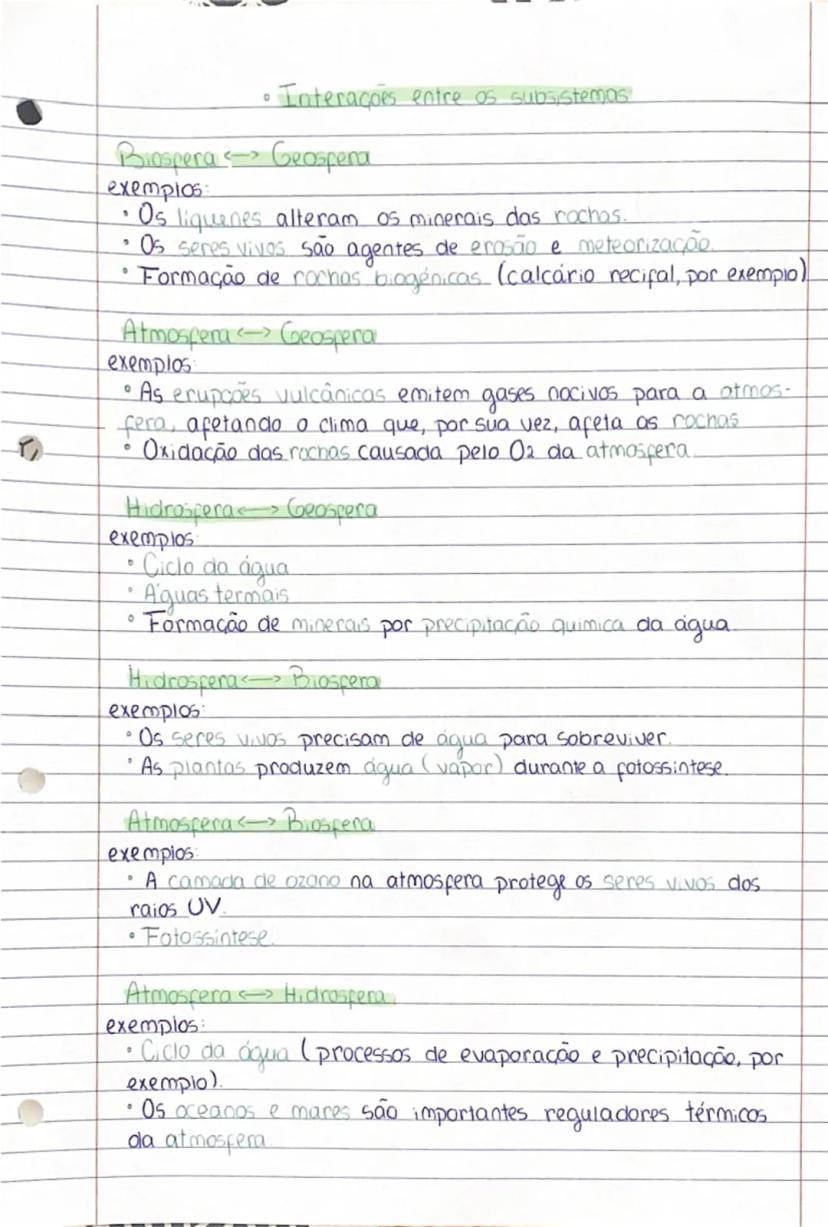 • Interações entre os subsistemas
Biosfera <-> Geosfera
exemplos:
• Os liquenes alteram os minerais das rochas.
• Os seres vivos são agentes de erosão e meteorização.
• Formação de rochas biogénicas (calcário recifal, por exemplo)
Atmosfera <-> Geosfera
exemplos:
• As erupções vulcânicas emitem gases nocivos para a atmos-
fera, afetando o clima que, por sua vez, afeta as rochas
• Oxidação das rochas causada pelo O2 da atmosfera.
Hidrosfera <-> Geosfera
exemplos:
• Ciclo da água
• Águas termais
• Formação de minerais por precipitação química da água.
Hidrosfera <-> Biosfera
exemplos:
• Os seres vivos precisam de água para sobreviver.
• As plantas produzem água (vapor) durante a fotossíntese.
Atmosfera <-> Biosfera
exemplos:
• A camada de ozono na atmosfera protege os seres vivos dos
raios UV.
• Fotossíntese.
Atmosfera <-> Hidrosfera
exemplos:
• Ciclo da água (processos de evaporação e precipitação, por
exemplo).
• Os oceanos e mares são importantes reguladores térmicos
da atmosfera